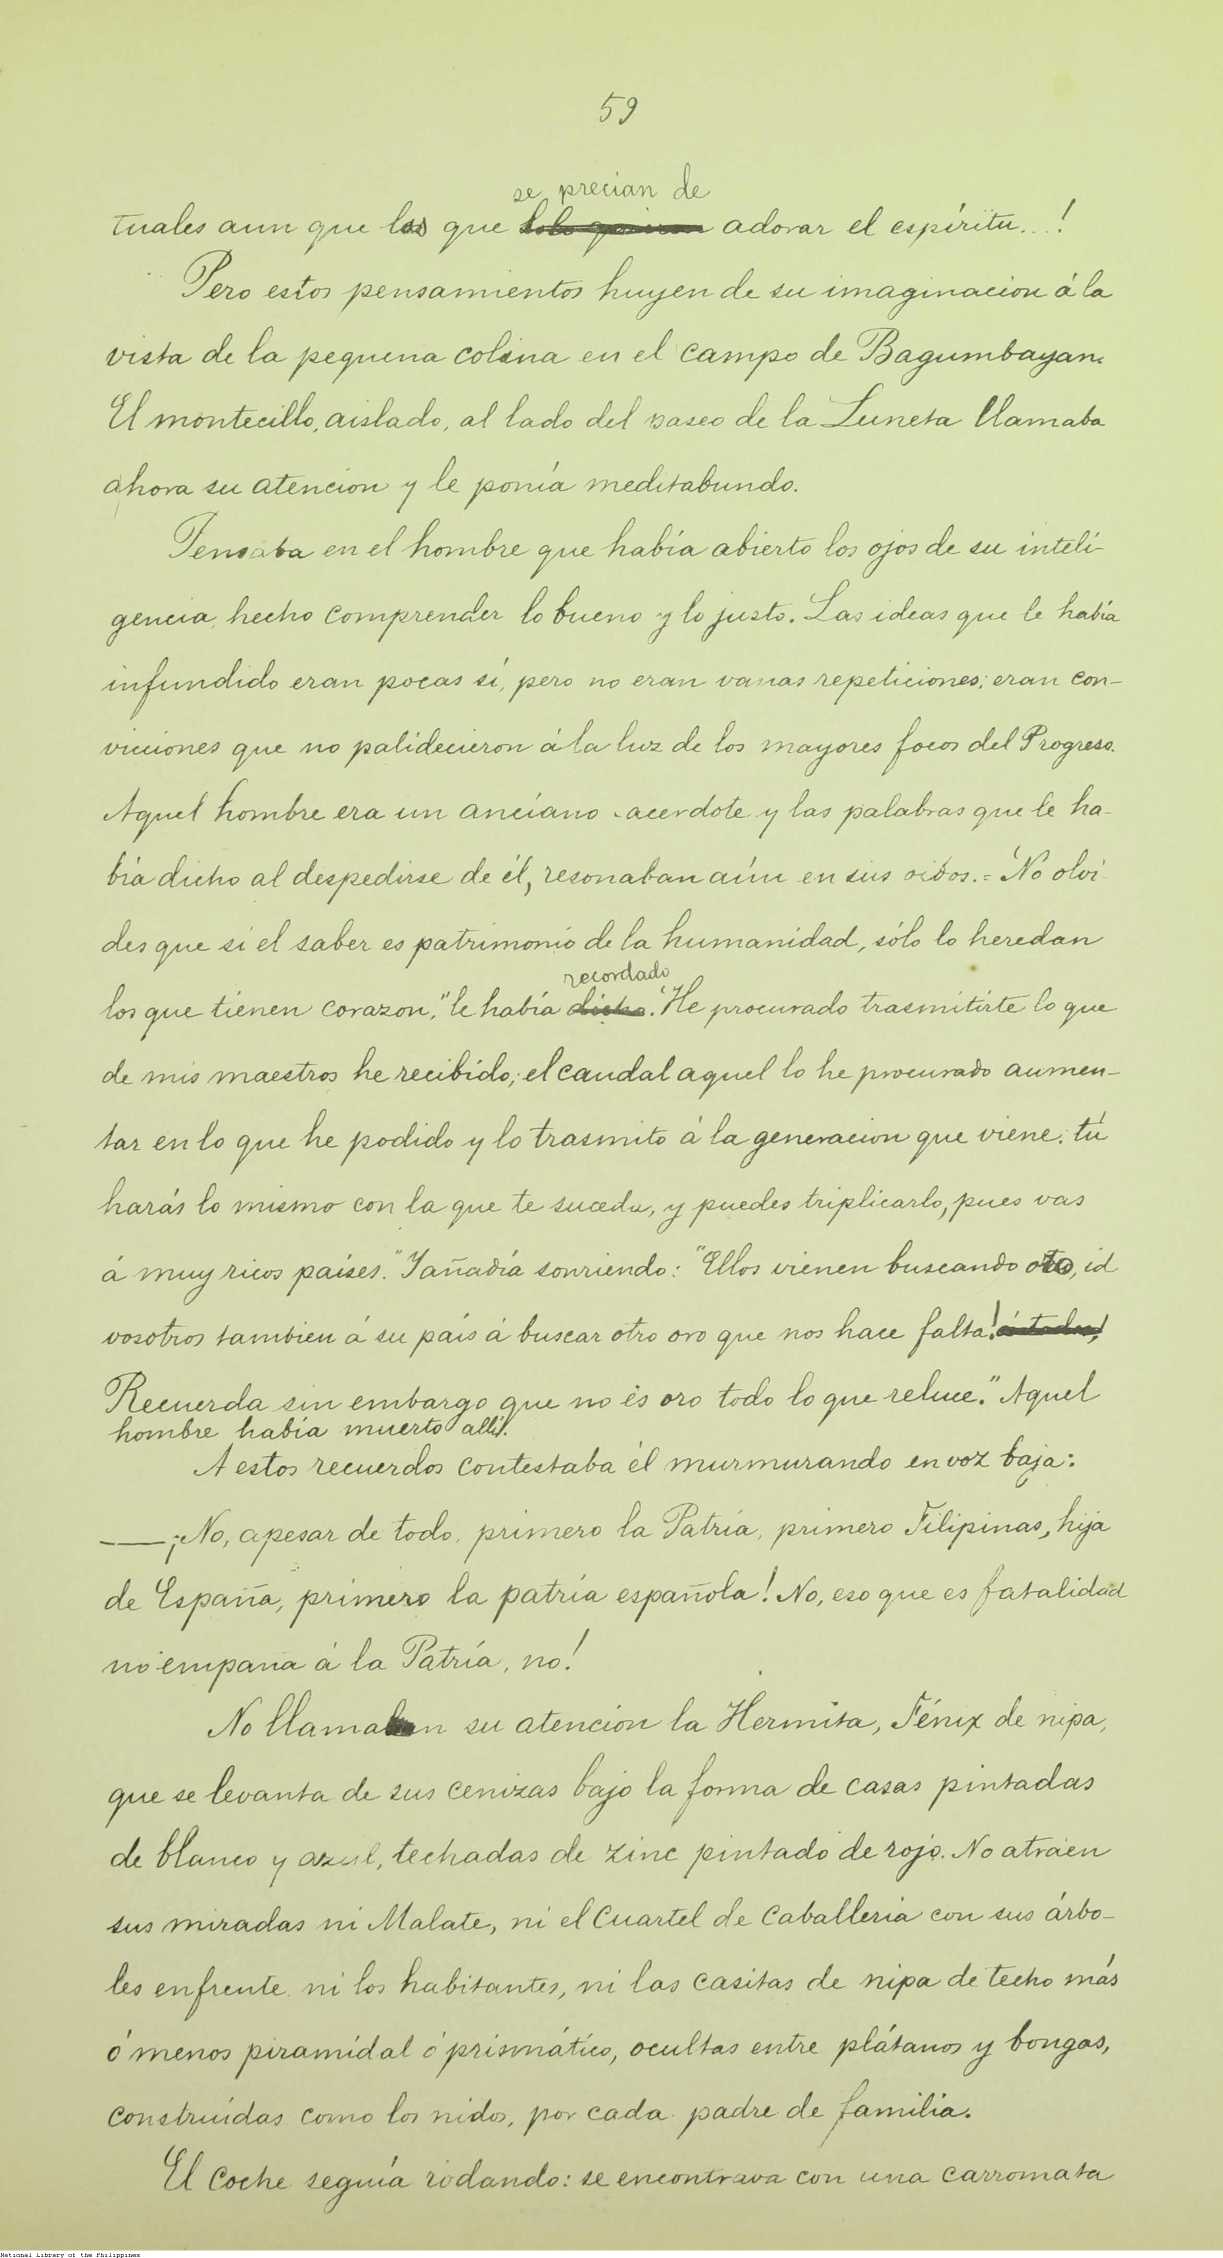 59
se precian de
tuales aun que los que adorar el espíritu...!
Pero estos pensamientos huyen de su imaginacion á la
vista de la pequena colina en el campo de Bagumbayan.
El montecillo, aislado, al lado del paseo de la Luneta llamaba
ahora su atencion y le ponía meditabundo.
Pensaba en el hombre que había abierto los ojos de su inteli-
gencia, hecho comprender lo bueno y lo justo. Las ideas que le había
infundido eran pocas sí, pero no eran vanas repeticiones; eran con-
vicciones que no palidecieron á la luz de los mayores focos del Progreso.
Aquel hombre era un anciano sacerdote y las palabras que le ha-
bía dicho al despedirse de él, resonaban aún en sus oidos.= "No olvi
des que si el saber es patrimonio de la humanidad, sólo lo heredan
recordado
los que tienen corazon," le había dicho. "He procurado trasmitirte lo que
de mis maestros he recibido; el caudal aquel lo he procurado aumen-
tar en lo que he podido y lo trasmito á la generacion que viene: tú
harás lo mismo con la que te suceda, y puedes triplicarlo, pues vas
á muy ricos países." Y añadía sonriendo: "Ellos vienen buscando oro, id
vosotros tambien á su país á buscar otro oro que nos hace falta!
Recuerda sin embargo que no es oro todo lo que reluce." Aquel
hombre había muerto allí.
A estos recuerdos contestaba él murmurando en voz baja:
—¡No, apesar de todo, primero la Patria, primero Filipinas, hija
de España, primero la patria española! No, eso que es fatalidad
no empaña á la Patría, no!
No llamaban su atencion la Hermita, Fénix de nipa,
que se levanta de sus cenizas bajo la forma de casas pintadas
de blanco y azul, techadas de zinc pintado de rojo. No atraen
sus miradas ni Malate, ni el Cuartel de Caballería con sus árbo-
les enfrente ni los habitantes, ni las casitas de nipa de techo más
ó menos piramidal ó prismático, ocultas entre plátanos y bongas,
construidas como los nidos, por cada padre de familia.
El coche seguía rodando: se encontrava con una carromata
National Library of the Philippines